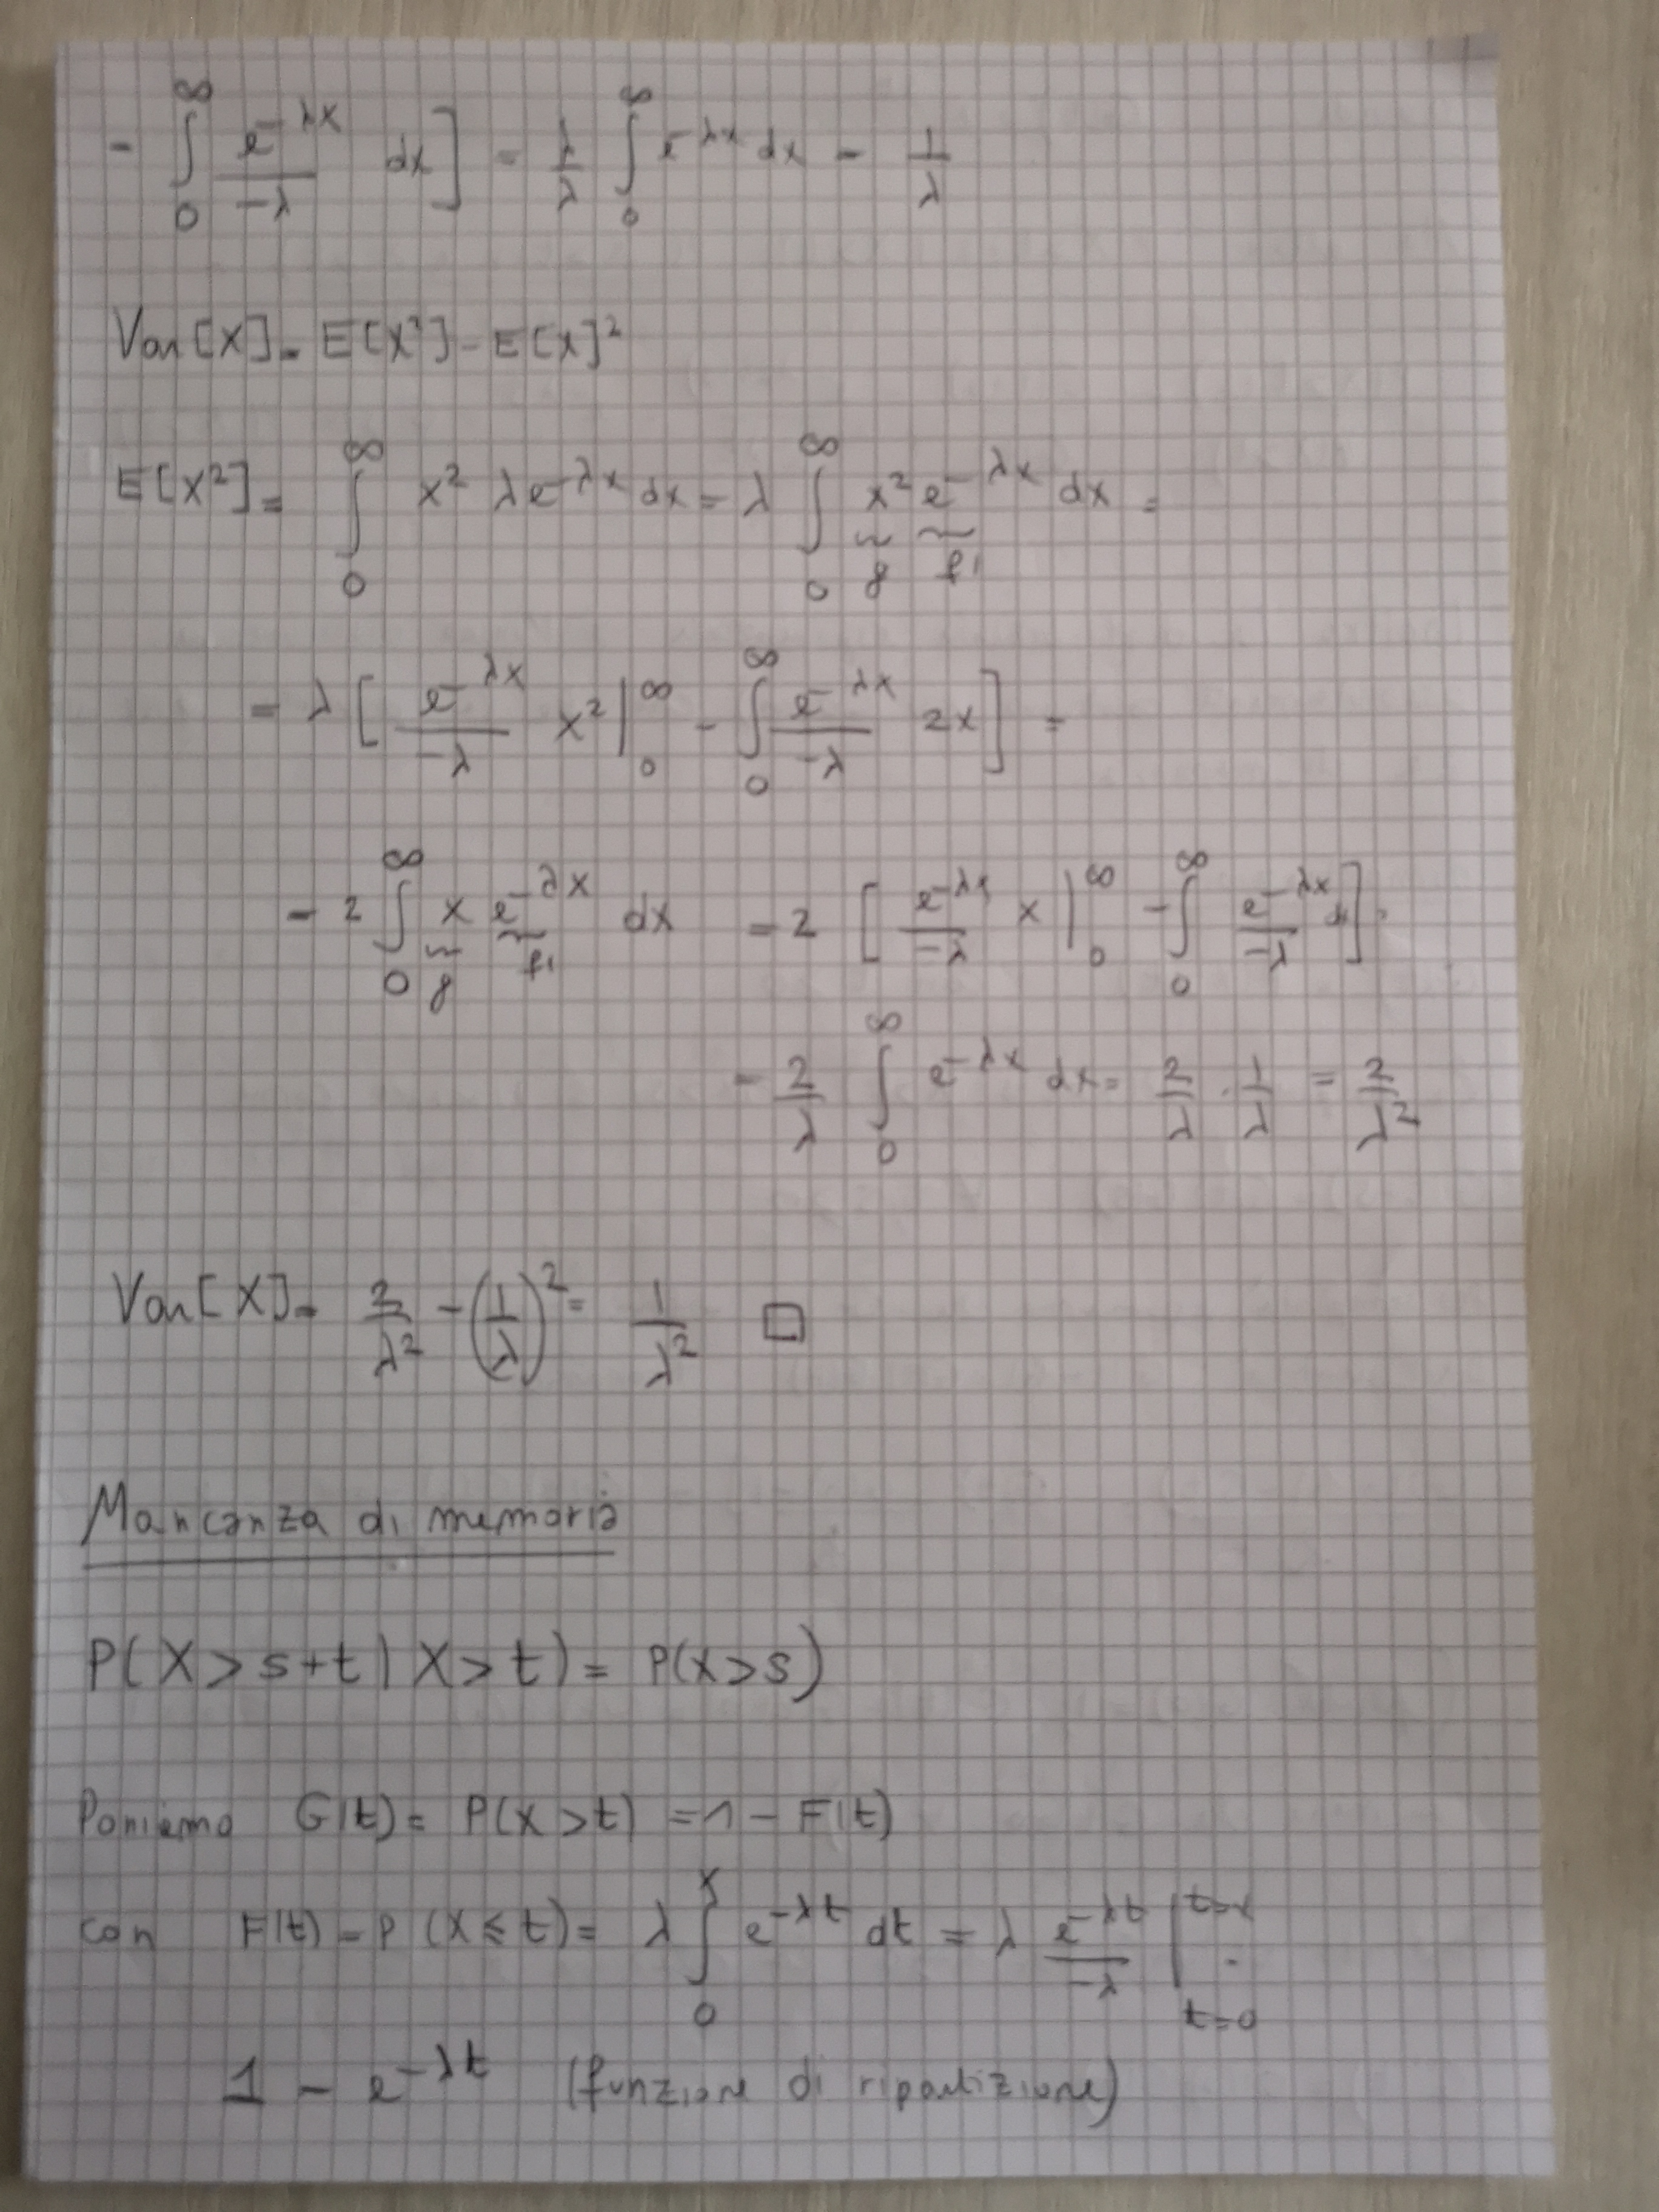 - ∫₀^∞ e^{-λx}/(-λ) dx] = λ/λ ∫₀^∞ e^{-λx} dx = 1/λ
Var[X] = E[X²] - E[X]²
E[X²] = ∫₀^∞ x² λe^{-λx} dx = λ ∫₀^∞ x² e^{-λx} dx =
g f'
= λ [ e^{-λx}/(-λ) x² |₀^∞ - ∫₀^∞ e^{-λx}/(-λ) 2x ] =
= 2 ∫₀^∞ x e^{-λx} dx = 2 [ e^{-λx}/(-λ) x |₀^∞ - ∫₀^∞ e^{-λx}/(-λ) dx ] =
g f'
= 2/λ ∫₀^∞ e^{-λx} dx = 2/λ · 1/λ = 2/λ²
Var[X] = 2/λ² - (1/λ)² = 1/λ² □
Mancanza di memoria
P(X > s+t | X > t) = P(X > s)
Poniamo G(t) = P(X > t) = 1 - F(t)
con F(t) = P(X ≤ t) = λ ∫₀^x e^{-λt} dt = λ e^{-λt}/(-λ) |_{t=0}^{t=x} =
1 - e^{-λt} (funzione di ripartizione)